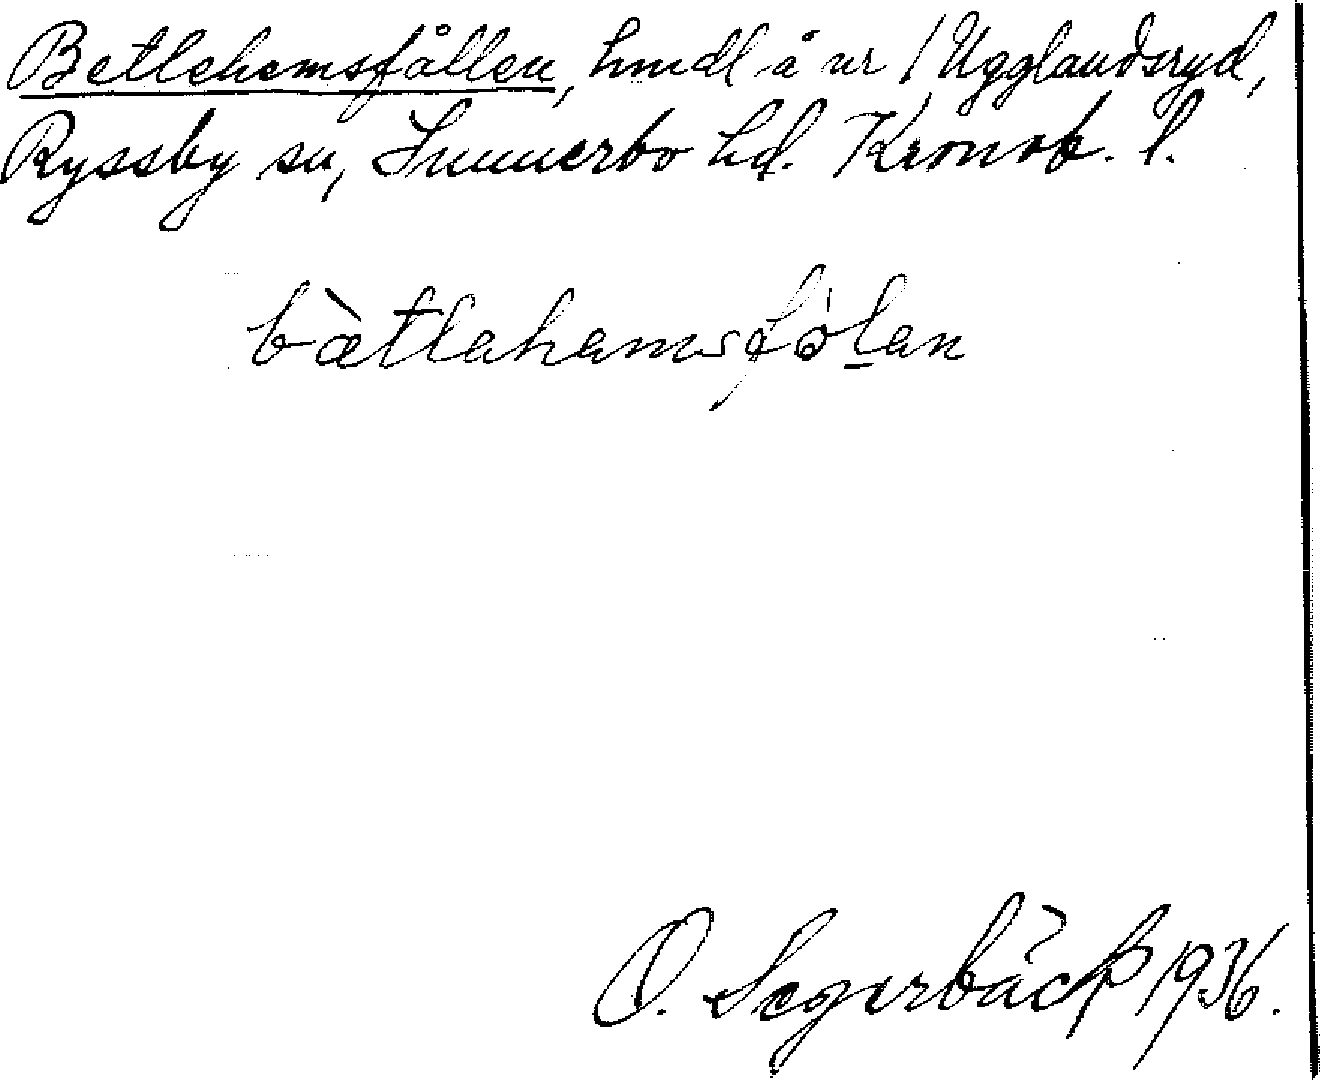 Betlehemsfållen, hmdl å nr 1 Ugglandsryd,
Ryssby sn, Sunnerbo hd. Kronob. l.
bàtlahamsfålan
O. Segerbäck 1936.